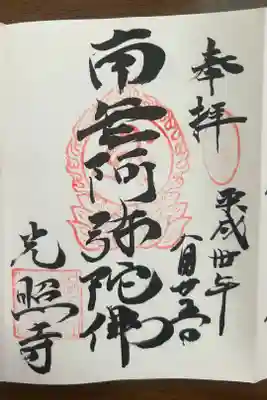 奉拝
平成卅年
八月廿五日
南无阿弥陀佛
光照寺